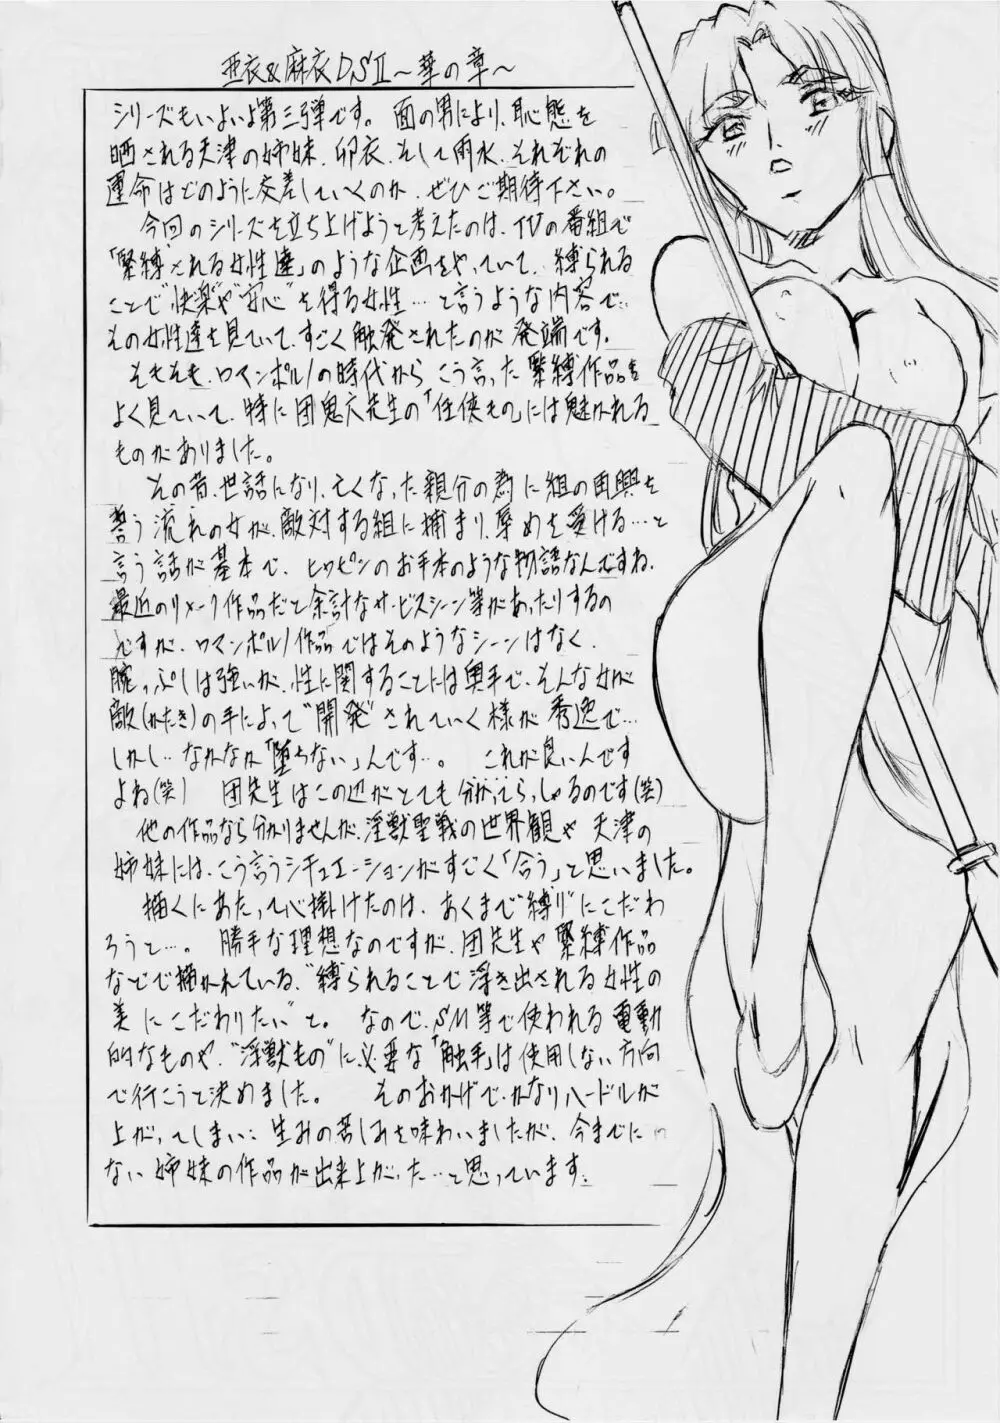 亜衣&麻衣D,SⅡ～華の章～
シリーズもいよいよ第三弾です。面の男により、恥態を
晒される天津の姉妹、卵衣、そして雨水、それぞれの
運命はどのように交差していくのか、ぜひご期待下さい。
今回のシリーズを立ち上げようと考えたのは、TVの番組で
「緊縛される女性達」のような企画をやっていて、縛られる
ことで“快楽”や“安心”を得る女性…と言うような内容で、
その女性達を見ていて、すごく触発されたのが発端です。
そもそも、ロマンポルノの時代からこう言った緊縛作品を
よく見ていて、特に団鬼六先生の「任侠もの」には魅かれる
ものがありました。
その昔、世話になり、亡くなった親分の為に組の再興を
誓う流れの女が、敵対する組に捕まり、辱めを受ける…と
言う話が基本で、ヒロピンのお手本のような物語なんですね。
最近のリメーク作品だと余計なサービスシーン等があったりするの
ですが、ロマンポルノ作品ではそのようなシーンはなく、
腕っぷしは強いが、性に関することには奥手で、そんな女が
敵(かたき)の手によって“開発”されていく様が秀逸で…
しかし…なかなか「堕ちない」んです…。これが良いんです
よね(笑) 団先生はこの辺がとても分かってらっしゃるのです(笑)
他の作品なら分かりませんが、淫獣聖戦の世界観や天津の
姉妹には、こう言うシチュエーションがすごく「合う」と思いました。
描くにあたって心掛けたのは、あくまで“縛り”にこだわ
ろうと…。勝手な理想なのですが、団先生や緊縛作品
などで描かれている、“縛られることで浮き出される女性の
美にこだわりたい”と。なので、SM等で使われる電動
的なものや、“淫獣もの”に必要な「触手」は使用しない方向
で行こうと決めました。そのおかげで、かなりハードルが
上がってしまい、生みの苦しみを味わいましたが、今までに
ない姉妹の作品が出来上がった…と思っています。